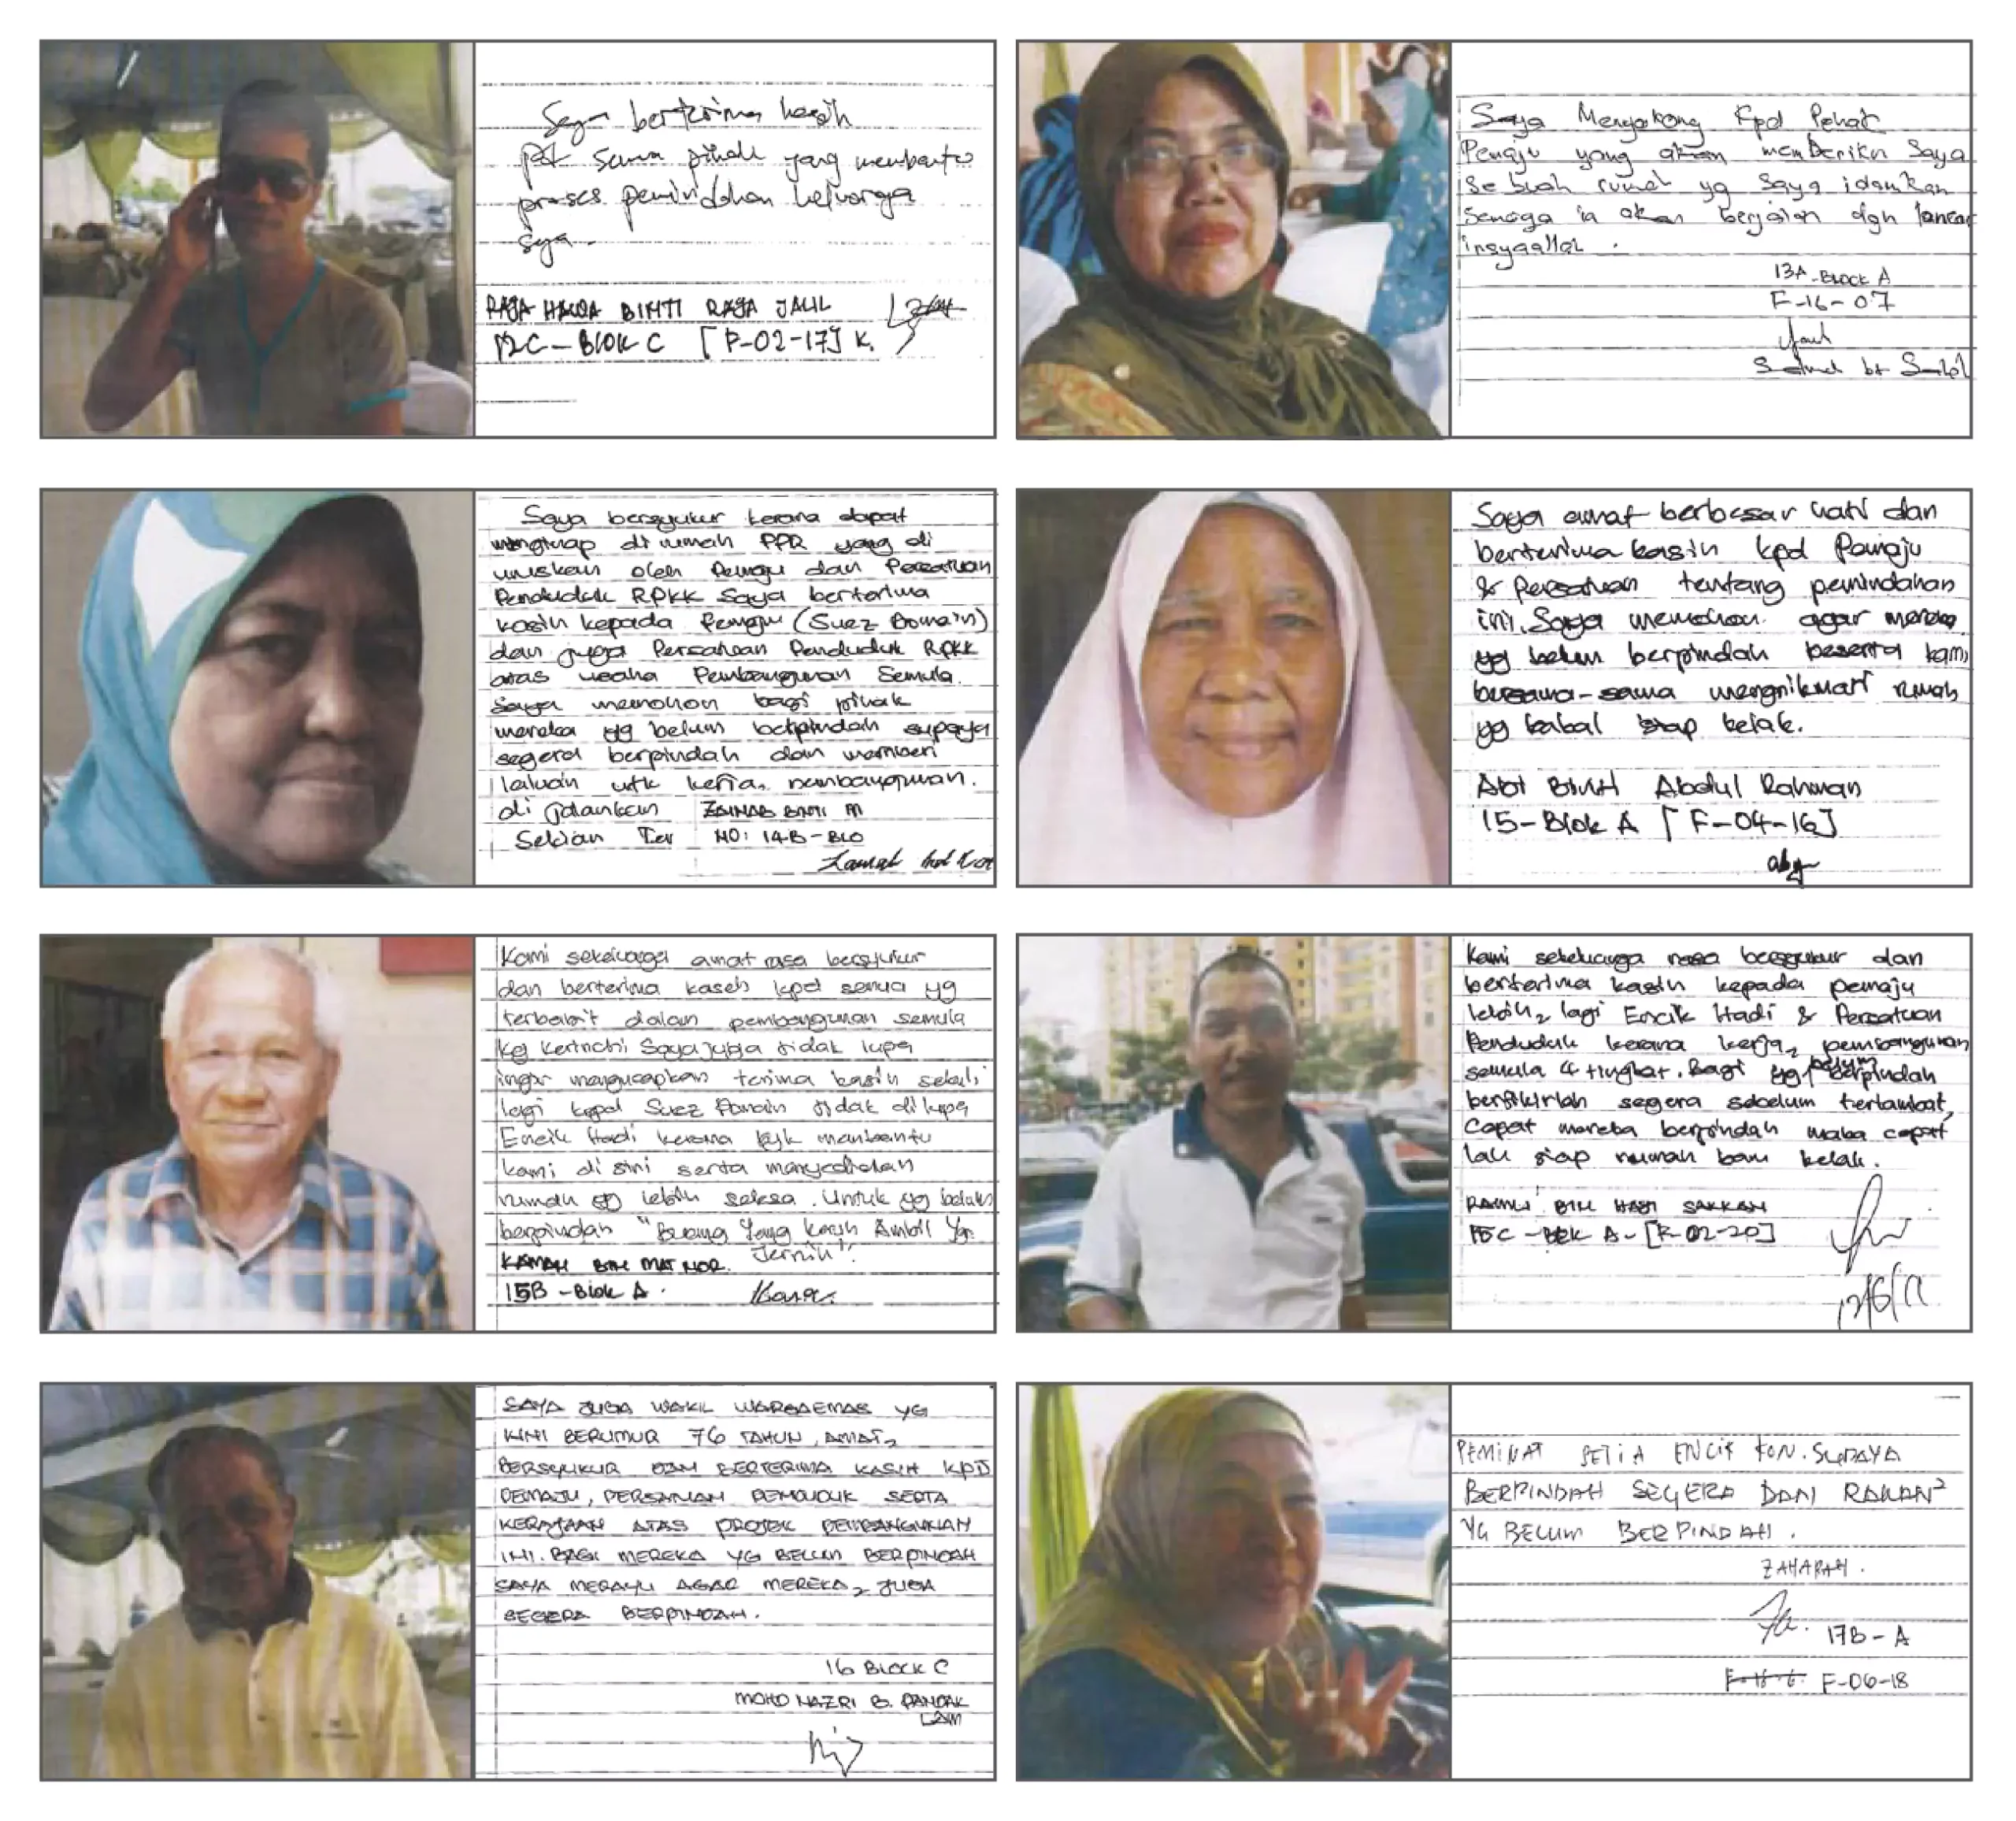 Saya berterima kasih
pd semua pihak yang membantu
proses pemindahan keluarga
saya.
RAJA HAWA BINTI RAJA JALIL
12C - BLOK C [F-02-17] K.
Saya Menyokong Kpd Pehak
Pemaju yang akan memberikn Saya
Sebuah rumah yg Saya idamkan
Semoga ia akan berjalan dgn lancar
insyaallah.
13A - BLOCK A
F-16-07
Saya bersyukur kerana dapat
menginap di rumah PPR yang di
uruskan oleh Pemaju dan Persatuan
Penduduk RPKK Saya berterima
kasih kepada Pemaju (Suez Domain)
dan juga Persatuan Penduduk RPKK
atas usaha Pembangunan Semula.
Saya memohon bagi pihak
mereka yg belum berpindah supaya
segera berpindah dan memberi
laluan utk kerja2 pembangunan.
di jalankan ZAINAB BINTI M
Sekian Ter NO: 14B-BLO
Saya amat berbesar hati dan
berterima kasih kpd Pemaju
& Persatuan tentang pemindahan
ini. Saya memohon agar mereka
yg belum berpindah beserta kami
bersama-sama mengnikmati rumah
yg bakal siap kelak.
Abi Binti Abdul Rahman
15-Blok A [F-04-16]
Kami sekeluarga amat rasa bersyukur
dan berterima kaseh kpd semua yg
terbabit dalam pembangunan semula
Kg Kerinchi Saya juga tidak lupa
ingin mengucapkan terima kasih sekali
lagi kepd Suez Domain tidak dilupa
Encik Hadi kerana byk membantu
kami di sini serta menyediakan
rumah yg lebih selesa. Untuk yg belum
berpindah "Buang Yang Keruh Ambil Yg
Jernih".
KAMAH BIN MAT NOR.
15B - Blok A.
Kami sekeluarga rasa bersyukur dan
berterima kasih kepada pemaju
lebih2 lagi Encik Hadi & Persatuan
Penduduk kerana kerja2 pembangunan
semula 4 tingkat. Bagi yg belum berpindah
berfikirlah segera sebelum terlambat,
Cepat mereka berpindah maka cepat
lah siap rumah baru kelak.
RAMLI BIN HAJI SAKKAM
15C - BLOK A - [F-02-20]
12/6/11
SAYA JUGA WAKIL WARGAEMAS YG
KINI BERUMUR 76 TAHUN, AMAT2
BERSYUKUR DAN BERTERIMA KASIH KPD
PEMAJU, PERSATUAN PENDUDUK SERTA
KERAJAAN ATAS PROJEK PEMBANGUNAN
INI. BAGI MEREKA YG BELUM BERPINDAH
SAYA MERAYU AGAR MEREKA2 JUGA
SEGERA BERPINDAH.
16 BLOCK C
MOHD NAZRI B. PANDAK
LAM
PEMINAT SETIA ENCIK KON. SUPAYA
BERPINDAH SEGERA DAN RAKAN2
YG BELUM BERPINDAH.
ZAHARAH.
17B - A
F-06-18